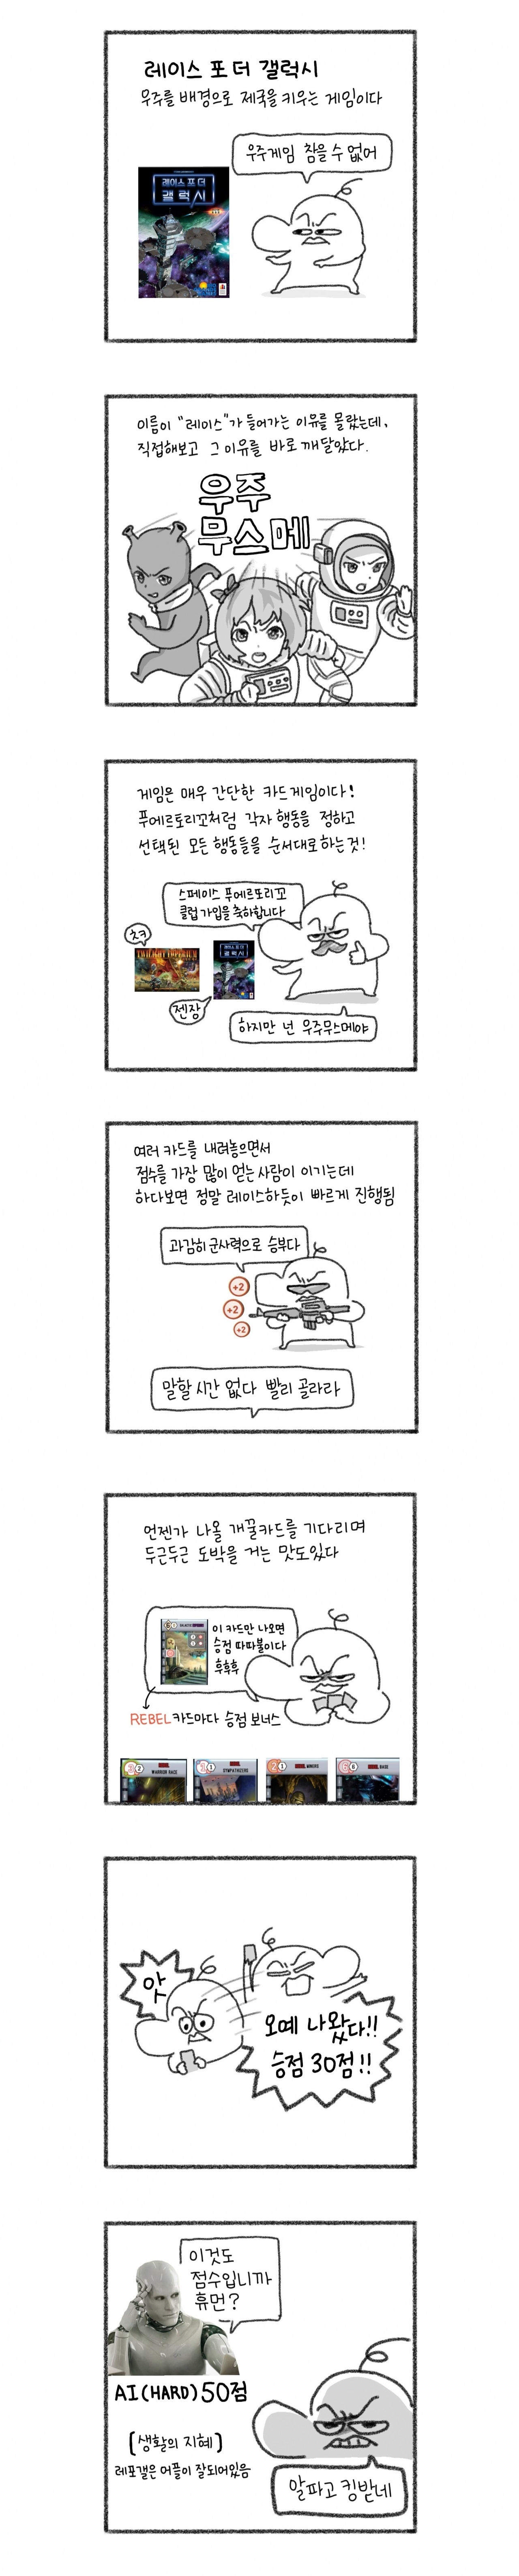 레이스 포 더 갤럭시
우주를 배경으로 제국을 키우는 게임이다
우주게임 참을 수 없어
레이스 포 더
갤럭시
이름이 "레이스"가 들어가는 이유를 몰랐는데,
직접해보고 그 이유를 바로 깨달았다.
우주
무스메
게임은 매우 간단한 카드게임이다!
푸에르토리꼬처럼 각자 행동을 정하고
선택된 모든 행동들을 순서대로하는것!
스페이스 푸에르또리꼬
클럽 가입을 축하합니다
츠ㅋ
TWILIGHT IMPERIUM
레이스 포 더
갤럭시
젠장
하지만 넌 우주무스메야
여러 카드를 내려놓으면서
점수를 가장 많이 얻는 사람이 이기는데
하다보면 정말 레이스하듯이 빠르게 진행됨
과감히 군사력으로 승부다
+2
+2
+2
말할 시간 없다 빨리 골라라
언젠가 나올 개꿀카드를 기다리며
두근두근 도박을 거는 맛도있다
이 카드만 나오면
승점 따따블이다
후후후
REBEL카드마다 승점 보너스
WARRIOR RACE
SYMPATHIZERS
MINERS
BASE
앗
오예 나왔다!!
승점 30점!!
이것도
점수입니까
휴먼?
AI(HARD) 50점
[생활의 지혜]
레포갤은 어플이 잘되어있음
알파고 킹받네